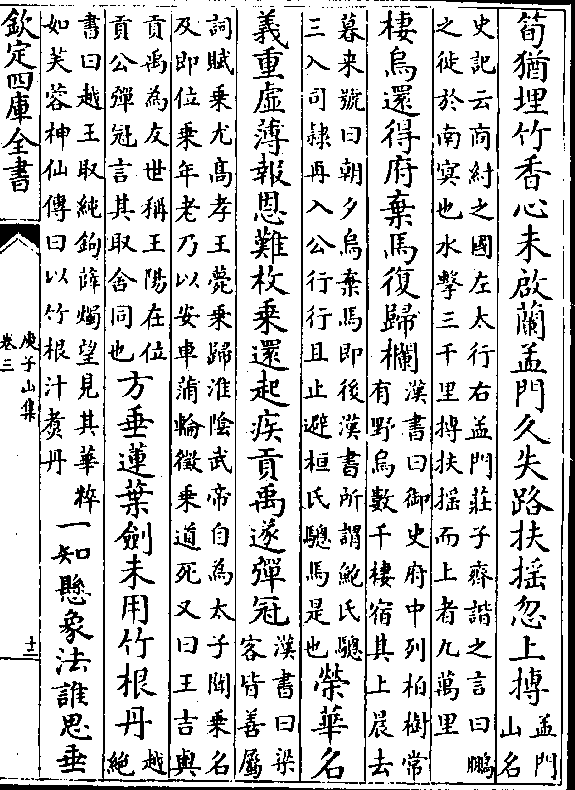 筍猶埋竹香心未啟蘭孟門久失路扶搖忽上摶孟門山名
史記云商紂之國左太行右孟門莊子齊諧之言曰鵬
之徙於南冥也水擊三千里摶扶搖而上者九萬里
棲烏還得府棄馬復歸欄漢書曰御史府中列柏樹常有野烏數千棲宿其上晨去
暮来號曰朝夕烏棄馬即後漢書所謂鮑氏驄
三入司隸再入公行行且止避桓氏驄馬是也榮華名
義重虛薄報恩難枚乗還起疾貢禹遂彈冠漢書曰梁客皆善屬
詞賦乗尤髙孝王薨乗歸淮陰武帝自為太子聞乗名
及即位乗年老乃以安車蒲輪徵乗道死又曰王吉與
貢禹為友世稱王陽在位
貢公彈冠言其取舍同也方垂蓮葉劍未用竹根丹越絶
書曰越王取純鉤薛燭望見其華粹
如芙蓉神仙傳曰以竹根汁煑丹一知懸象法誰思垂
欽定四庫全書
庾子山集
卷三
十二